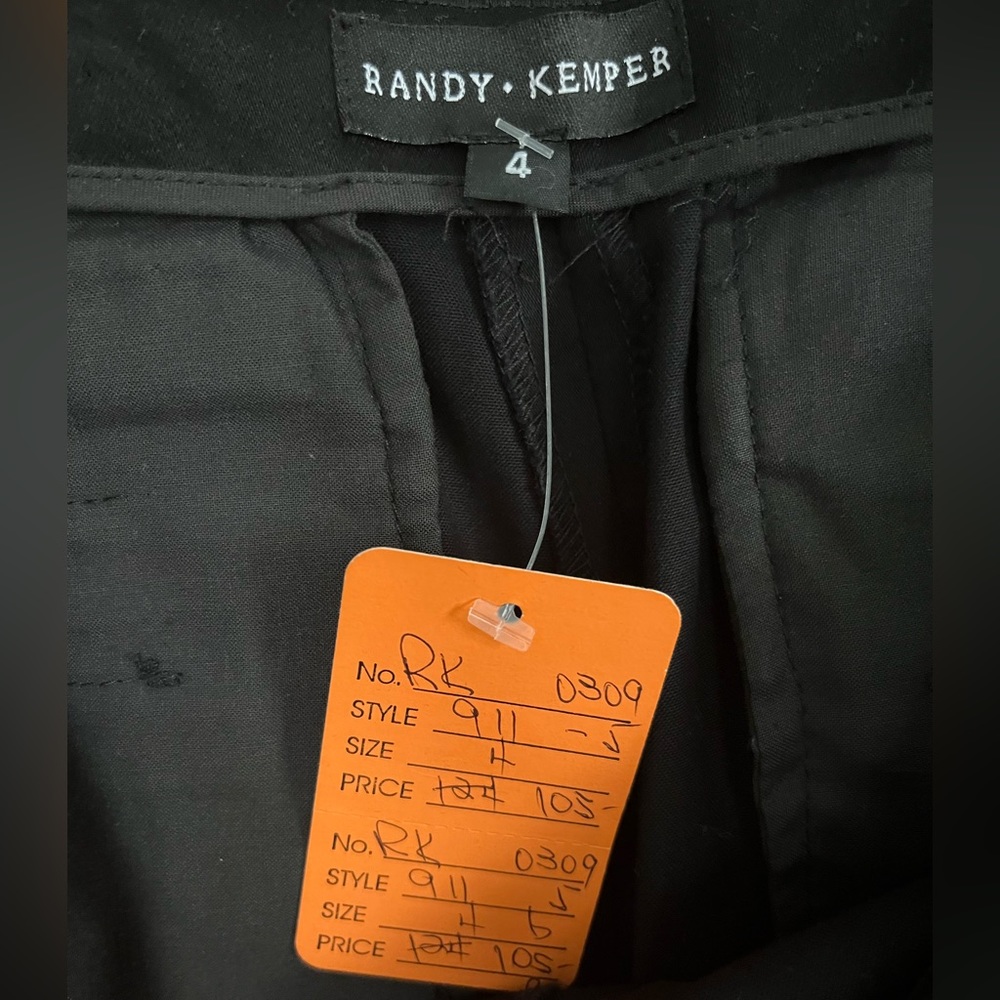 RANDY • KEMPER
4
No. RK 0309
STYLE 911 - 5
SIZE 4
PRICE 124 105-
No. RK 0309
STYLE 911
SIZE 4
PRICE 124 105-